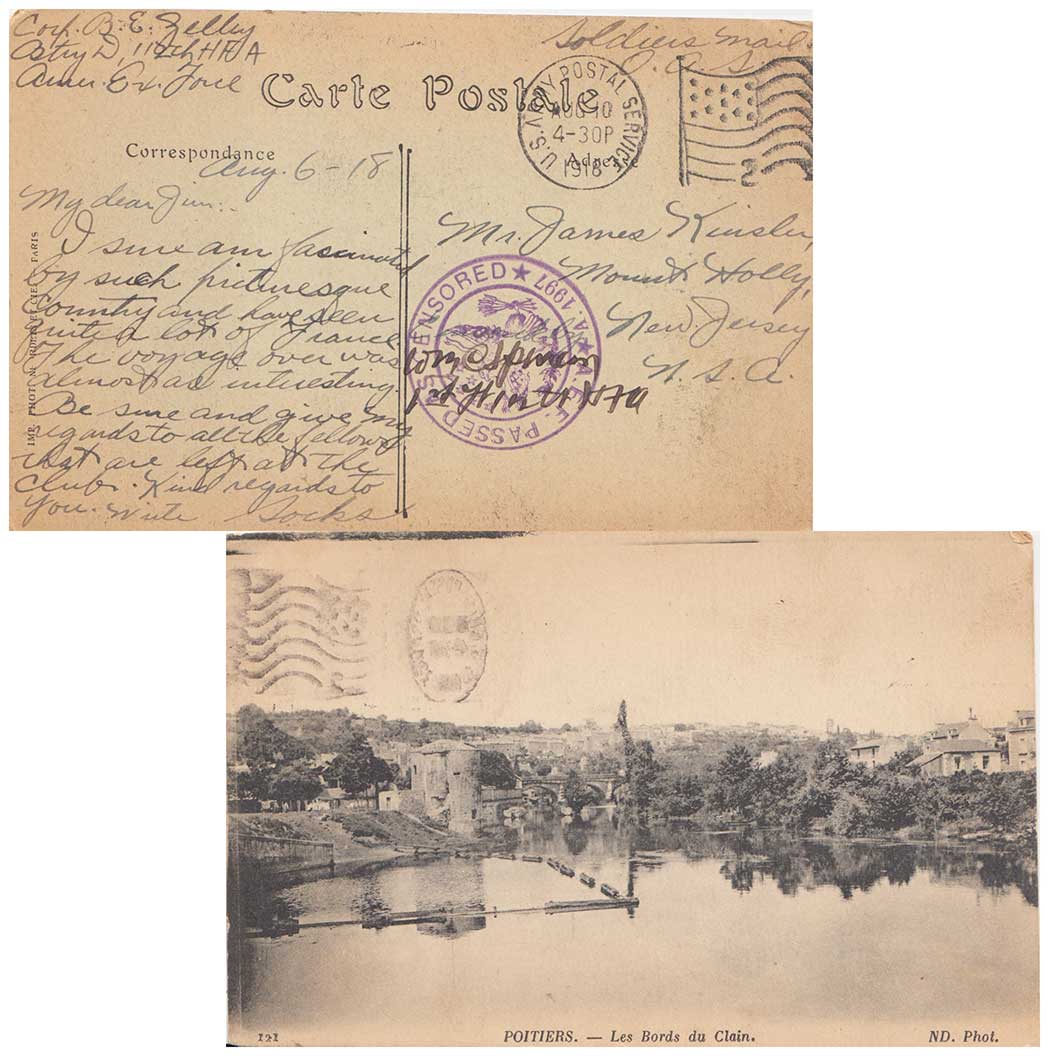 Corp. B. E. Zelley
Btry D, 112th HFA
Amer. Ex. Force
Soldiers Mail
O. A. S.
Carte Postale
U.S. ARMY POSTAL SERVICE
AUG 10
4-30P
1918
Correspondance
Adresse
Aug. 6-18
My dear Jim:
I sure am fascinated
by such picturesque
Country and have seen
quite a lot of France
The voyage over was
almost as interesting.
Be sure and give my
regards to all the fellows
that are left at the
Club. Kind regards to
you. Write Socks
Mr. James Kinsler,
Mount Holly,
New Jersey
U. S. A.
A.E.F. PASSED AS CENSORED ★ A. 1997 ★
PARIS
121
POITIERS. — Les Bords du Clain.
ND. Phot.